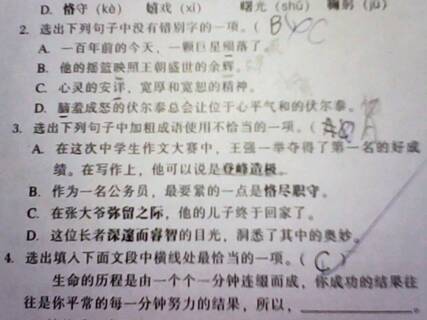 D. 恪守（kè） 嬉戏（xí） 曙光（shǔ） 鞠躬（jū）
2. 选出下列句子中没有错别字的一项。（ B C
A. 一百年前的今天，一颗巨星殒落了
B. 他的摇篮映照王朝盛世的余辉。
C. 心灵的安详，宽厚和宽恕的精神。
D. 脑羞成怒的伏尔泰总会让位于心平气和的伏尔泰。
3. 选出下列句子中加粗成语使用不恰当的一项。（ A
A. 在这次中学生作文大赛中，王强一举夺得了第一名的好成
绩。在写作上，他可以说是登峰造极。
B. 作为一名公务员，最要紧的一点是恪尽职守。
C. 在张大爷弥留之际，他的儿子终于回家了。
D. 这位长者深邃而睿智的目光，洞悉了其中的奥妙。
4. 选出填入下面文段中横线处最恰当的一项。（ C ）
生命的历程是由一个个一分钟连缀而成，你成功的结果往
往是你平常的每一分钟努力的结果，所以，________。